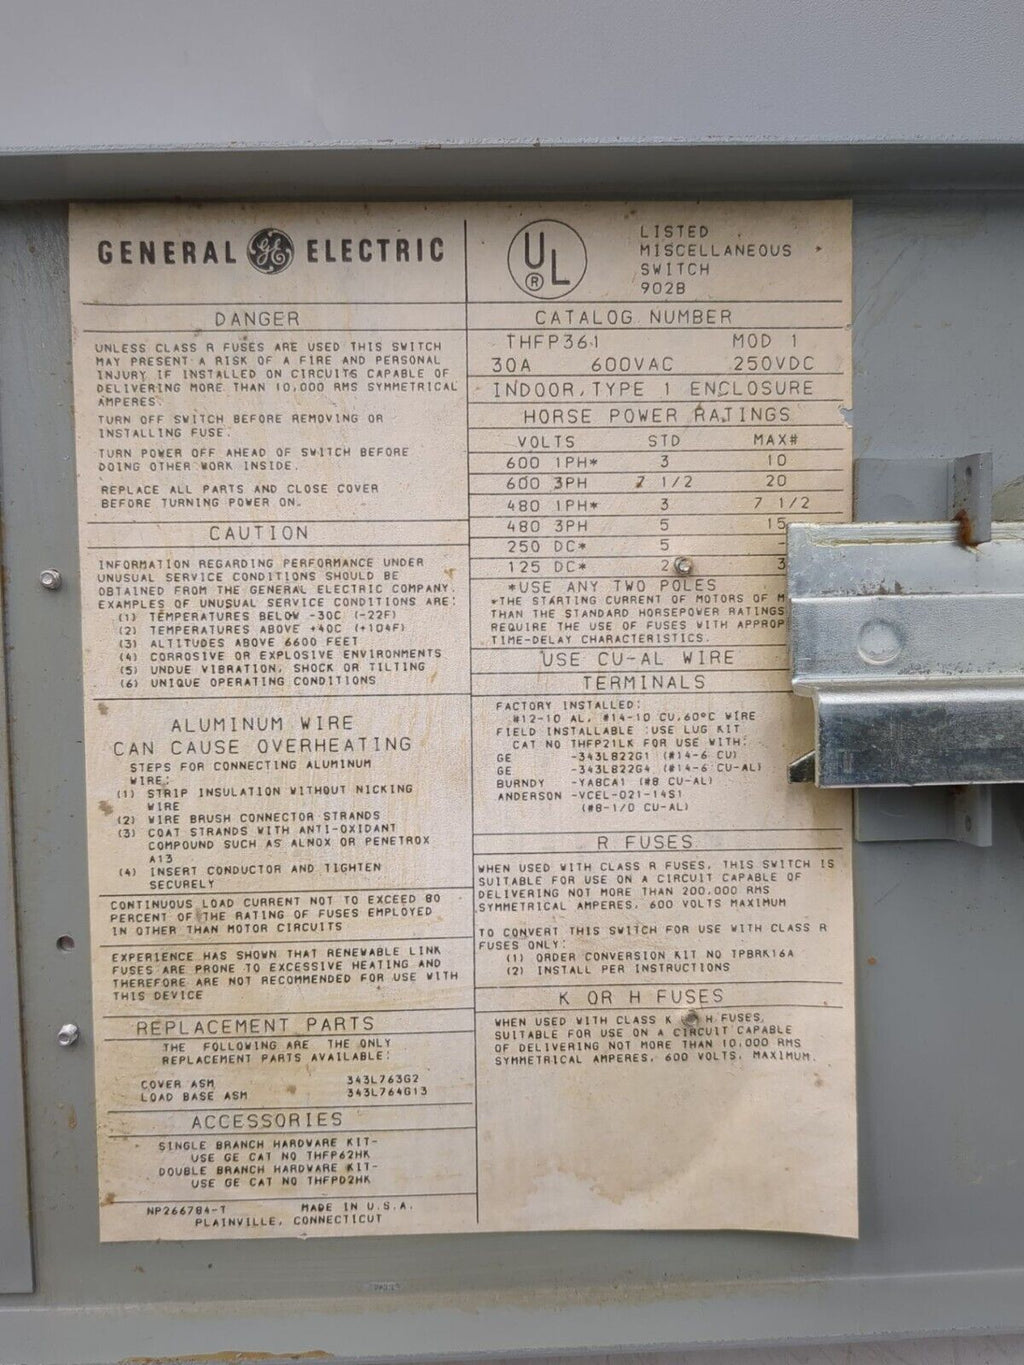 GENERAL GE ELECTRIC
DANGER
UNLESS CLASS R FUSES ARE USED THIS SWITCH
MAY PRESENT A RISK OF A FIRE AND PERSONAL
INJURY IF INSTALLED ON CIRCUITS CAPABLE OF
DELIVERING MORE THAN 10,000 RMS SYMMETRICAL
AMPERES.
TURN OFF SWITCH BEFORE REMOVING OR
INSTALLING FUSE.
TURN POWER OFF AHEAD OF SWITCH BEFORE
DOING OTHER WORK INSIDE.
REPLACE ALL PARTS AND CLOSE COVER
BEFORE TURNING POWER ON.
CAUTION
INFORMATION REGARDING PERFORMANCE UNDER
UNUSUAL SERVICE CONDITIONS SHOULD BE
OBTAINED FROM THE GENERAL ELECTRIC COMPANY.
EXAMPLES OF UNUSUAL SERVICE CONDITIONS ARE:
(1) TEMPERATURES BELOW -30C (-22F)
(2) TEMPERATURES ABOVE +40C (+104F)
(3) ALTITUDES ABOVE 6600 FEET
(4) CORROSIVE OR EXPLOSIVE ENVIRONMENTS
(5) UNDUE VIBRATION, SHOCK OR TILTING
(6) UNIQUE OPERATING CONDITIONS
ALUMINUM WIRE
CAN CAUSE OVERHEATING
STEPS FOR CONNECTING ALUMINUM
WIRE:
(1) STRIP INSULATION WITHOUT NICKING
WIRE
(2) WIRE BRUSH CONNECTOR STRANDS
(3) COAT STRANDS WITH ANTI-OXIDANT
COMPOUND SUCH AS ALNOX OR PENETROX
A13
(4) INSERT CONDUCTOR AND TIGHTEN
SECURELY
CONTINUOUS LOAD CURRENT NOT TO EXCEED 80
PERCENT OF THE RATING OF FUSES EMPLOYED
IN OTHER THAN MOTOR CIRCUITS
EXPERIENCE HAS SHOWN THAT RENEWABLE LINK
FUSES ARE PRONE TO EXCESSIVE HEATING AND
THEREFORE ARE NOT RECOMMENDED FOR USE WITH
THIS DEVICE
REPLACEMENT PARTS
THE FOLLOWING ARE THE ONLY
REPLACEMENT PARTS AVAILABLE:
COVER ASM 343L763G2
LOAD BASE ASM 343L764G13
ACCESSORIES
SINGLE BRANCH HARDWARE KIT-
USE GE CAT NO THFP62HK
DOUBLE BRANCH HARDWARE KIT-
USE GE CAT NO THFPD2HK
NP266784-T MADE IN U.S.A.
PLAINVILLE, CONNECTICUT
UL ®
LISTED
MISCELLANEOUS
SWITCH
902B
CATALOG NUMBER
THFP361 MOD 1
30A 600VAC 250VDC
INDOOR, TYPE 1 ENCLOSURE
HORSE POWER RATINGS
VOLTS STD MAX#
600 1PH* 3 10
600 3PH 7 1/2 20
480 1PH* 3 7 1/2
480 3PH 5 15
250 DC* 5 -
125 DC* 2 3
*USE ANY TWO POLES
*THE STARTING CURRENT OF MOTORS OF M
THAN THE STANDARD HORSEPOWER RATINGS
REQUIRE THE USE OF FUSES WITH APPROP
TIME-DELAY CHARACTERISTICS.
USE CU-AL WIRE
TERMINALS
FACTORY INSTALLED:
#12-10 AL, #14-10 CU,60°C WIRE
FIELD INSTALLABLE :USE LUG KIT
CAT NO THFP21LK FOR USE WITH:
GE -343L822G1 (#14-6 CU)
GE -343L822G4 (#14-6 CU-AL)
BURNDY -YA8CA1 (#8 CU-AL)
ANDERSON -VCEL-021-14S1
(#8-1/0 CU-AL)
R FUSES
WHEN USED WITH CLASS R FUSES, THIS SWITCH IS
SUITABLE FOR USE ON A CIRCUIT CAPABLE OF
DELIVERING NOT MORE THAN 200,000 RMS
SYMMETRICAL AMPERES, 600 VOLTS MAXIMUM
TO CONVERT THIS SWITCH FOR USE WITH CLASS R
FUSES ONLY:
(1) ORDER CONVERSION KIT NO TPBRK16A
(2) INSTALL PER INSTRUCTIONS
K OR H FUSES
WHEN USED WITH CLASS K H FUSES,
SUITABLE FOR USE ON A CIRCUIT CAPABLE
OF DELIVERING NOT MORE THAN 10,000 RMS
SYMMETRICAL AMPERES, 600 VOLTS, MAXIMUM.